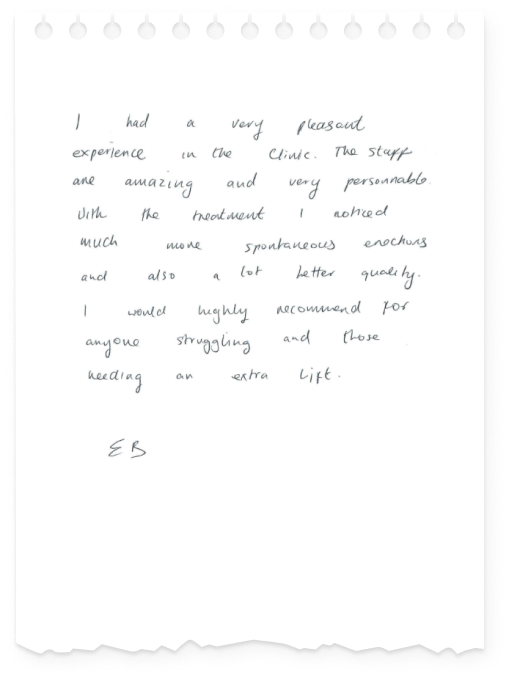 I had a very pleasant
experience in the Clinic. The staff
are amazing and very personnable.
With the treatment I noticed
much more spontaneous erections
and also a lot better quality.
I would highly recommend for
anyone struggling and those
needing an extra lift.
EB